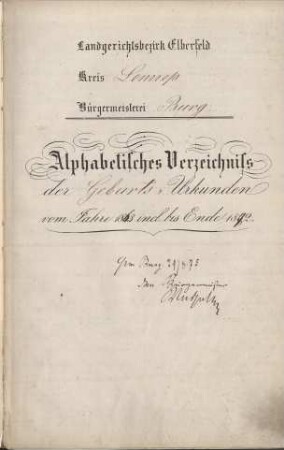 Landgerichtsbezirk Elberfeld
Kreis Lennep
Bürgermeisterei Burg
Alphabetisches Verzeichniß
der Geburts-Urkunden
vom Jahre incl. bis Ende
Burg
Der Bürgermeister